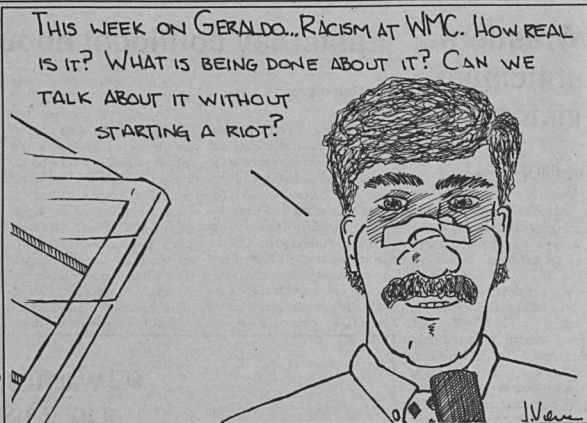 THIS WEEK ON GERALDO...RACISM AT WMC. HOW REAL
IS IT? WHAT IS BEING DONE ABOUT IT? CAN WE
TALK ABOUT IT WITHOUT
STARTING A RIOT?